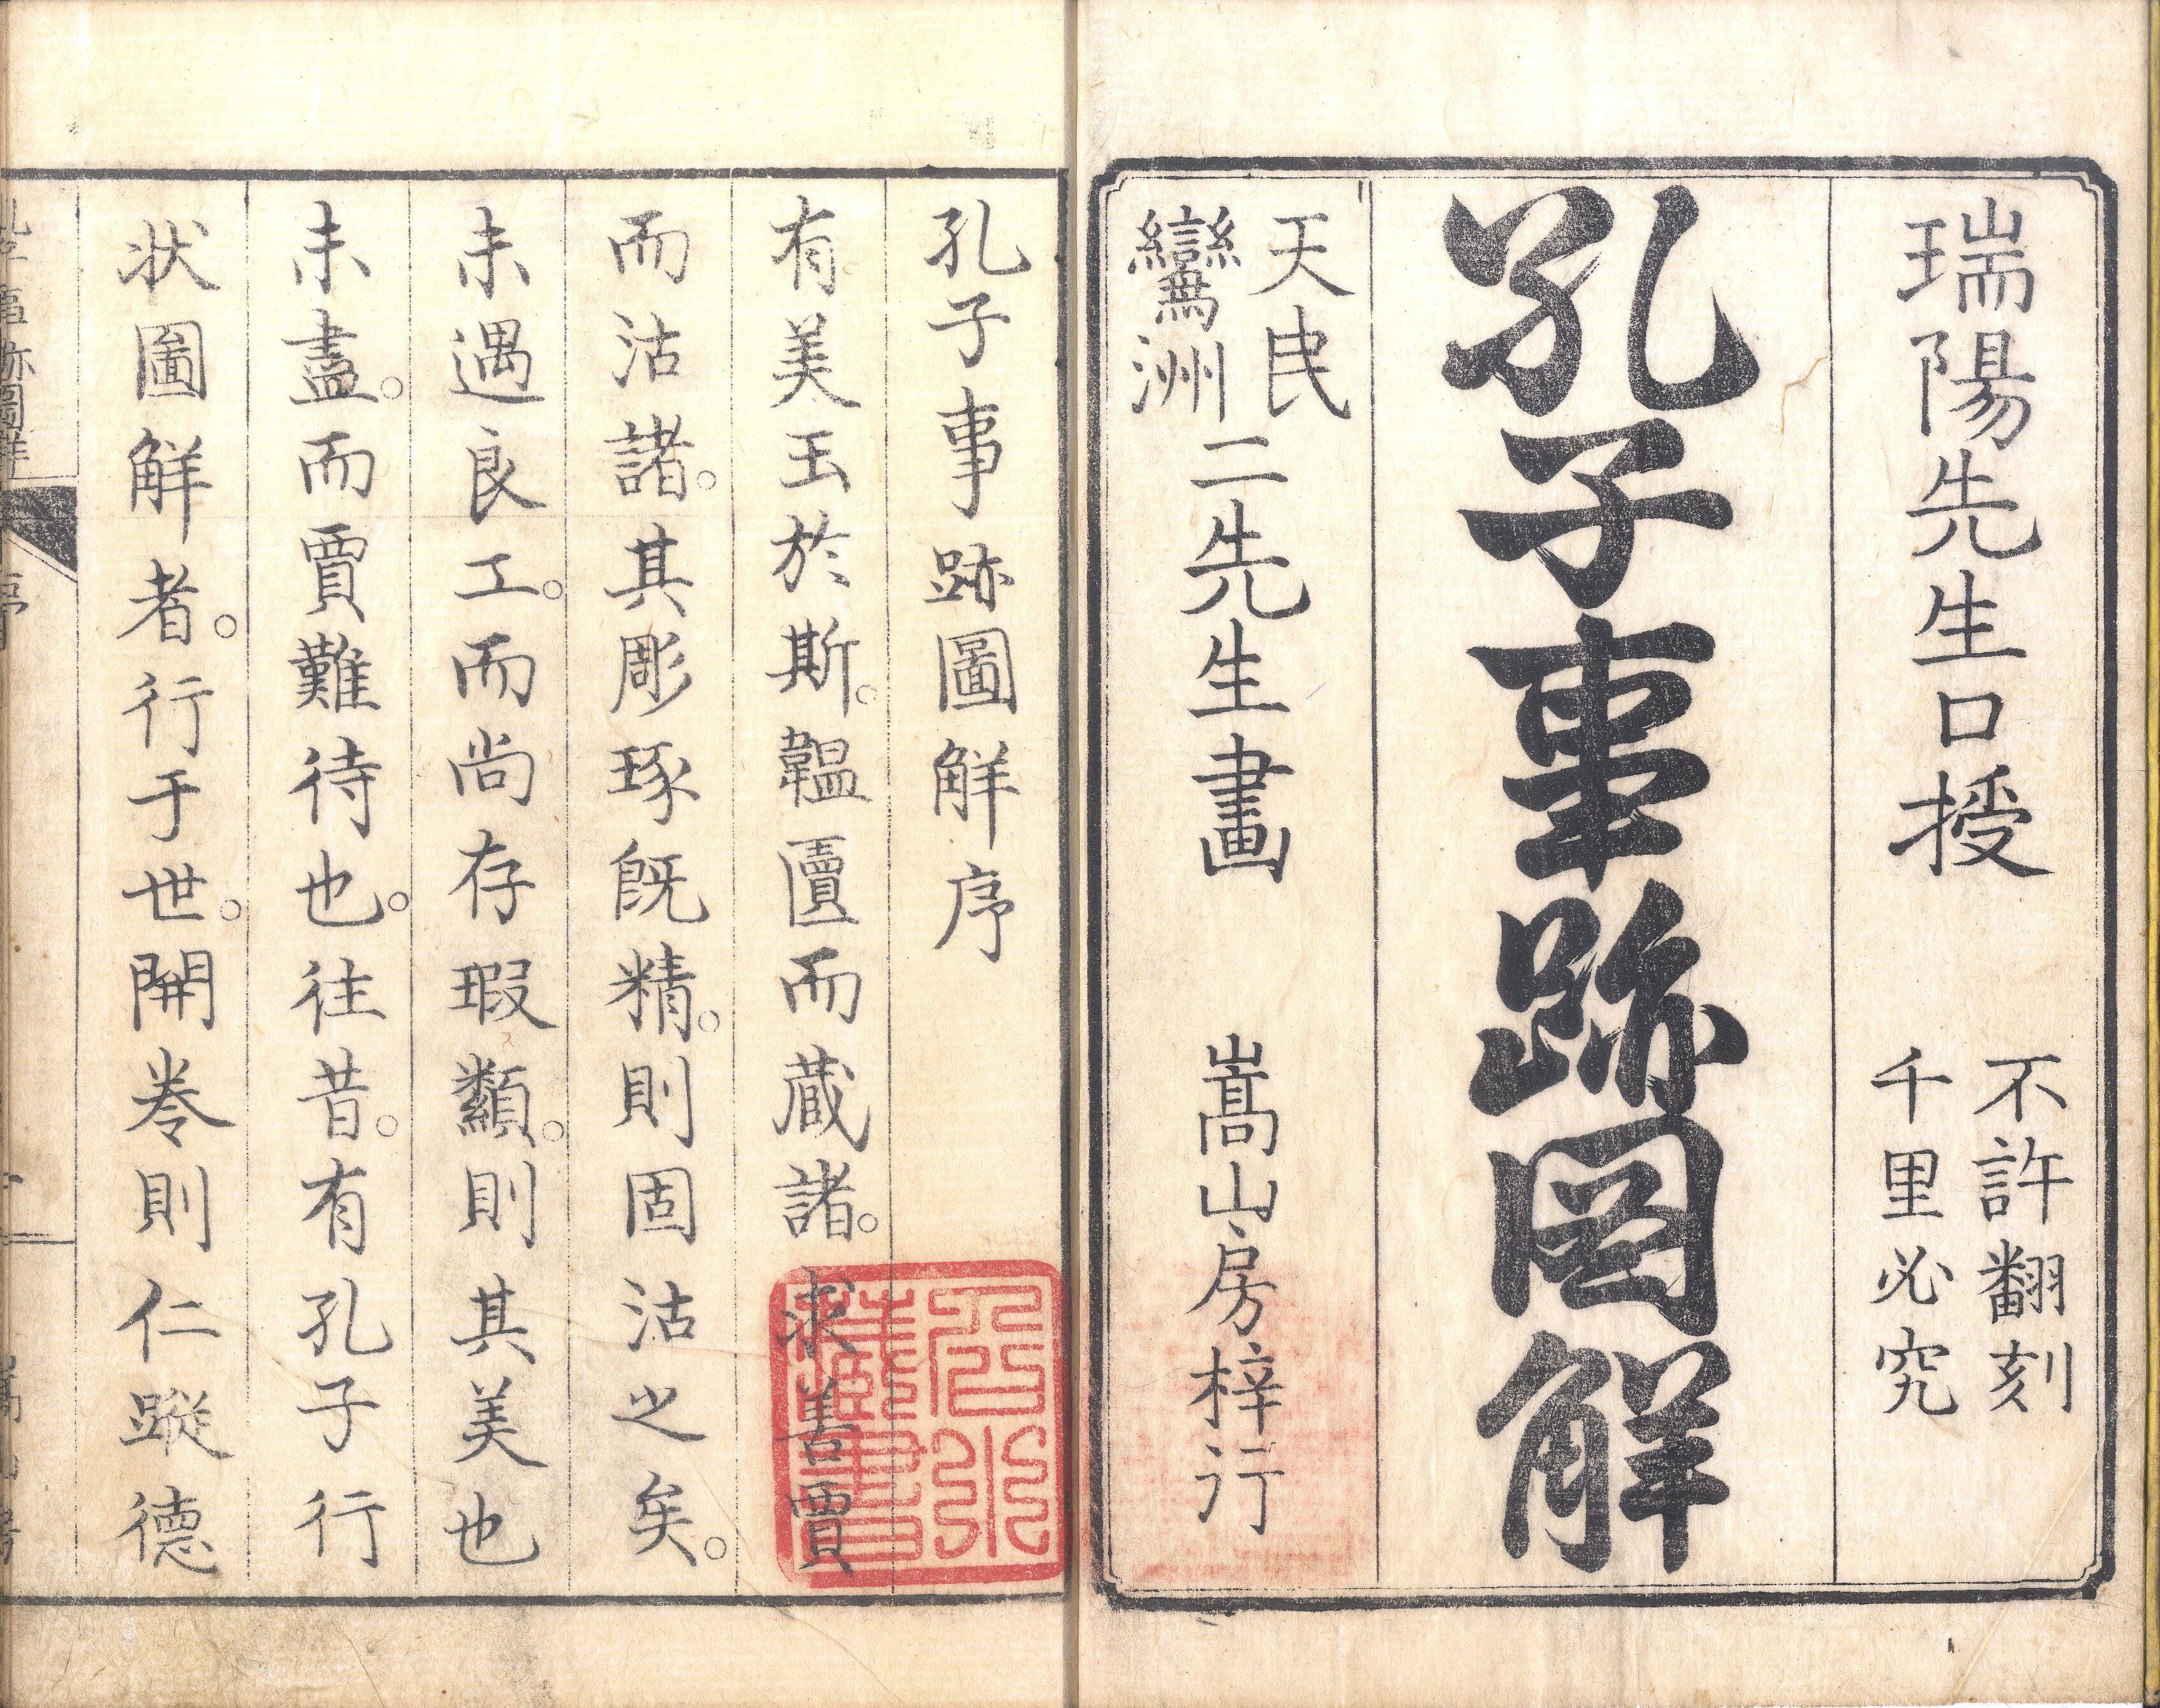 瑞陽先生口授
不許翻刻
千里必究
孔子事跡図觧
天民
鸞洲
二先生畫
嵩山房梓行
孔子事跡圖觧序
有美玉於斯。韞匵而蔵諸。求善賈
而沽諸。其彫琢既精。則固沽之矣。
未遇良工。而尚存瑕纇。則其美也
未盡。而賈難待也。往昔。有孔子行
状圖觧者。行于世。開巻則仁蹤德